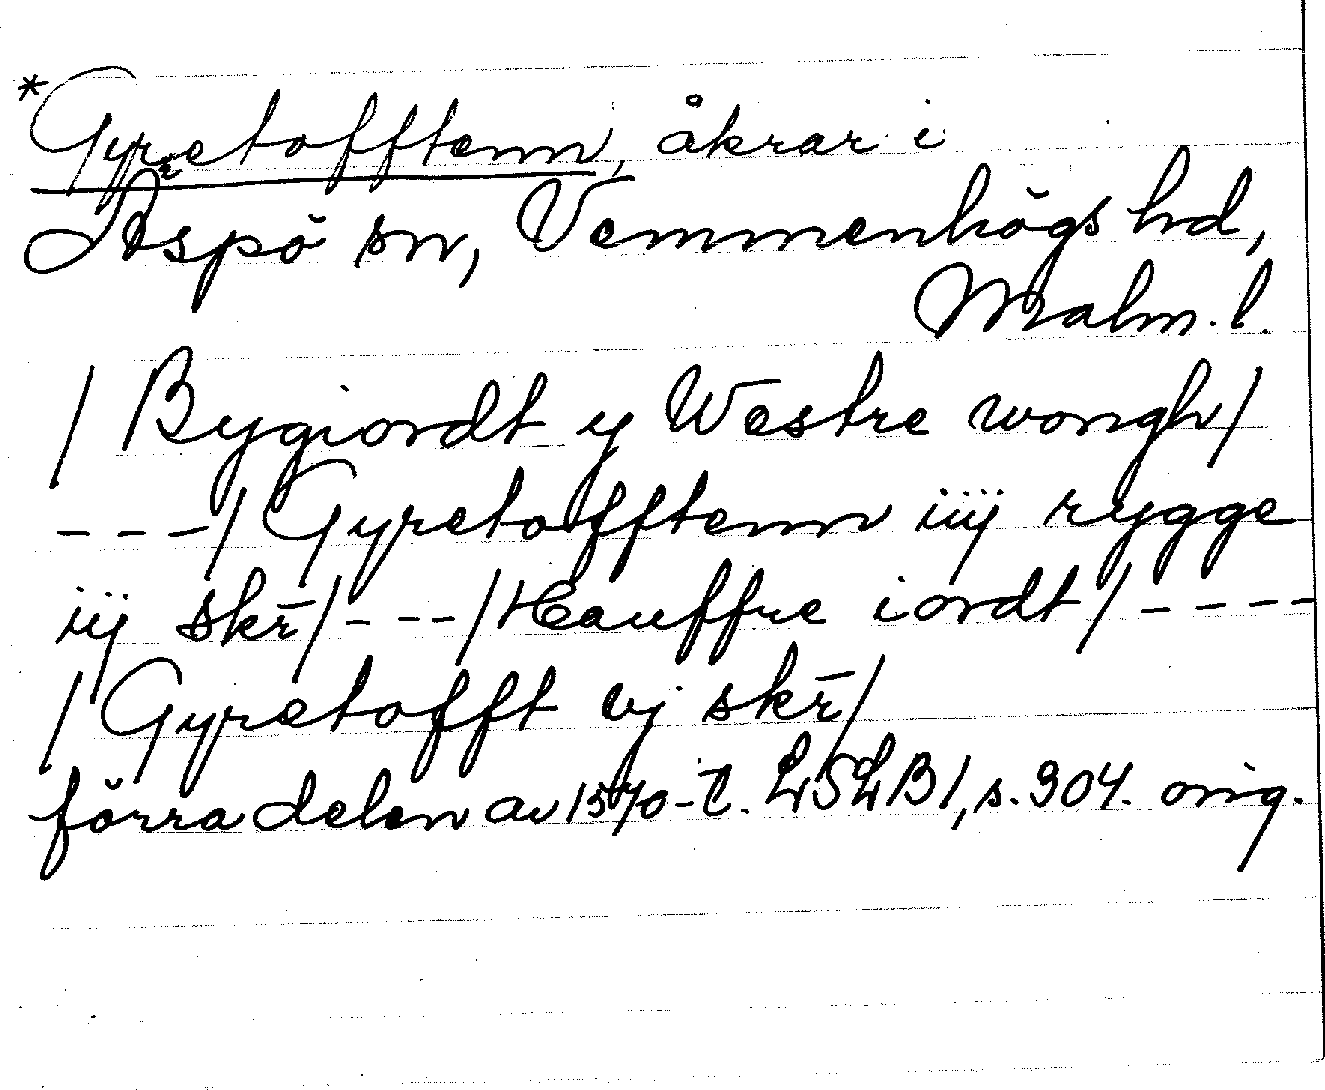 *Gyretofftenn, åkrar i
Äspö sn, Vemmenhögs hd,
Malm. l.
/ Bygiordt y Westre wongh/
---/ Gyretofftenn iiij rygge
iij skr̄/---/Hauffre iordt/----
/ Gyretofft vj skr̄/
förra delen av 1570-t. LSLB1, s. 304. orig.